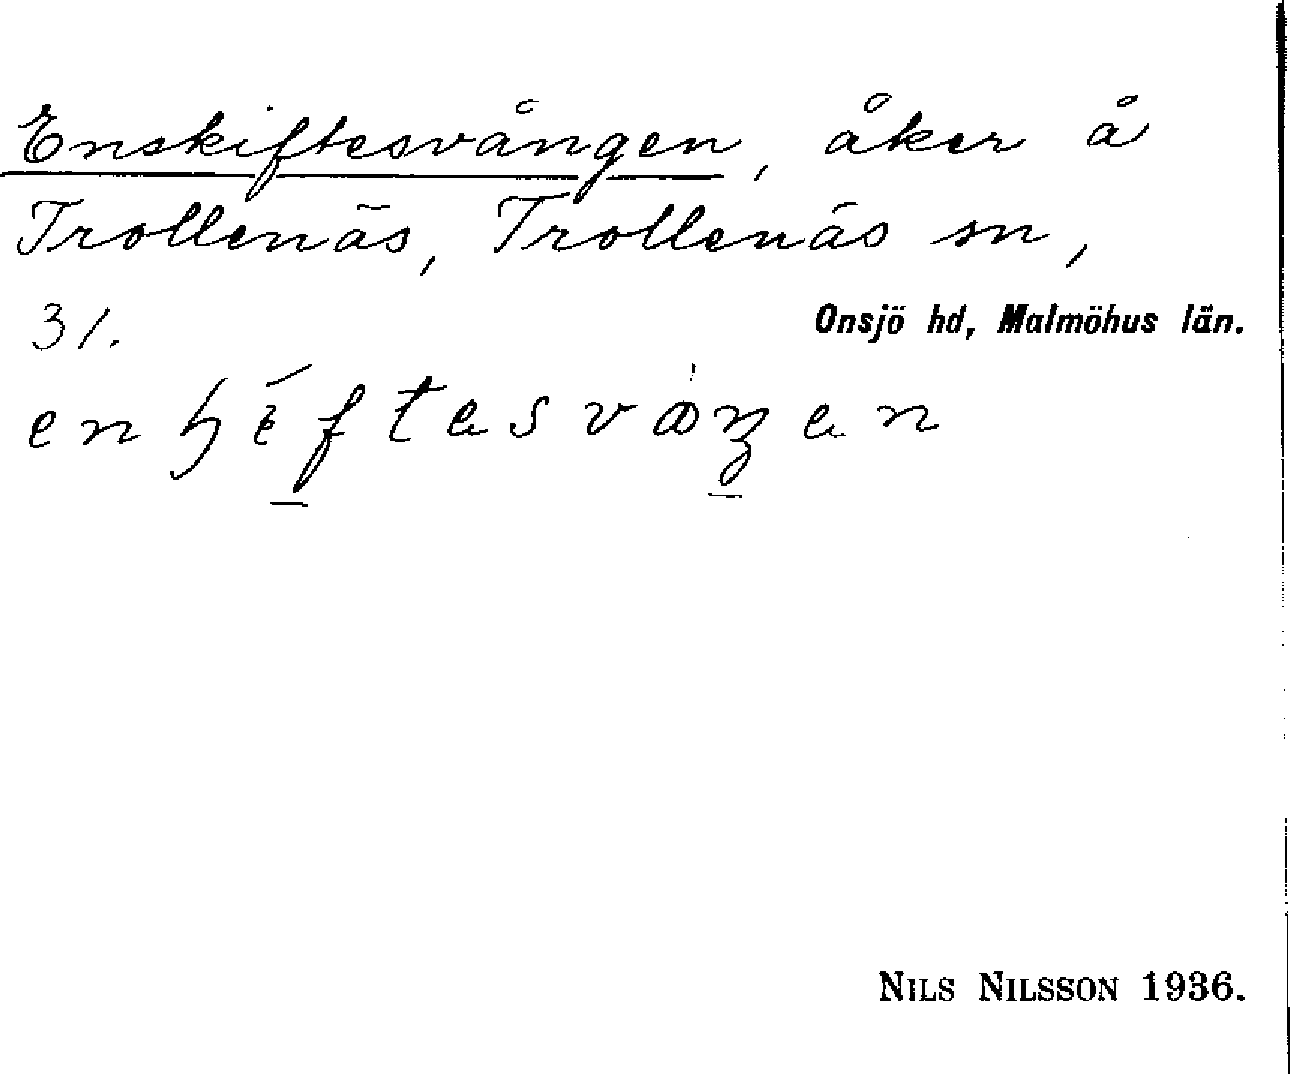 Enskiftesvången, åker å
Trollenäs, Trollenäs sn,
31. Onsjö hd, Malmöhus län.
NILS NILSSON 1936.